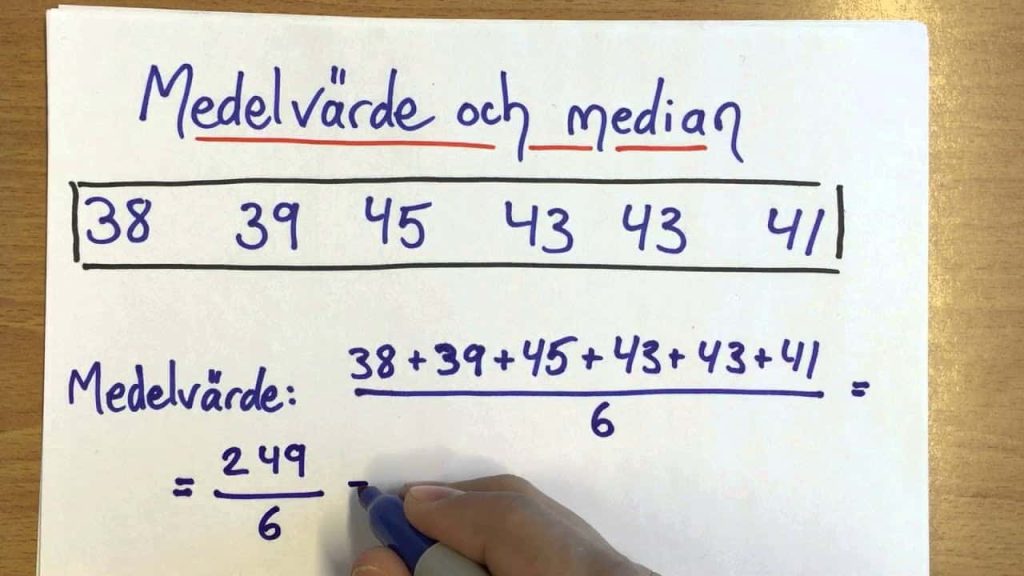 Medelvärde och median
38 39 45 43 43 41
Medelvärde: 38 + 39 + 45 + 43 + 43 + 41 =
6
= 249 -
6